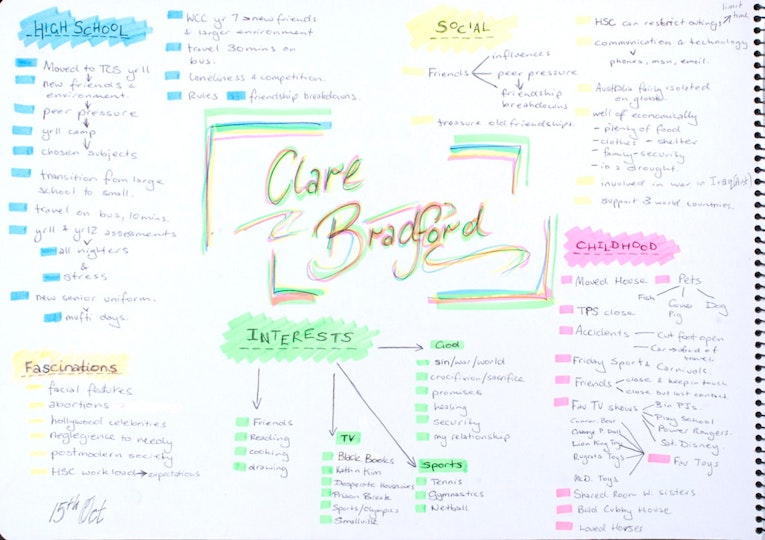 HIGH SCHOOL
Moved to TCS yr 11
new friends &
environment.
peer pressure
yr11 camp
chosen subjects
transition from large
school to small.
travel on bus, 10 mins.
yr11 & yr12 assessments
all nighters
&
stress
new senior uniform.
mufti days.
WCC yr 7 → new friends
& larger environment
travel 30 mins on
bus.
Loneliness & competition.
Rules
friendship breakdowns.
SOCIAL
Friends
influences
peer pressure
friendship
breakdowns
treasure old friendships.
limit
time
HSC can restrict outings
communication & technology
phones, msn, email.
Australia fairly isolated
on globe.
well of economically
- plenty of food
- clothes - shelter
- family - security
- in a drought.
involved in war in Iraq
support 3 world countries.
Clare
Bradford
CHILDHOOD
Moved House
Pets
Fish
Guinea
Pig
Dog
TPS close
Accidents
Cut foot open
Car
Friday Sport & Carnivals
Friends
close & keep in touch
close but lost contact.
Fav TV shows
Bin P.Is.
Play School
Power Rangers.
Sat. Disney.
Fav Toys
Lion King Toys
Rugrats Toys
McD. Toys
Shared Room W. sisters
Build Cubby House
Loved Horses
INTERESTS
Friends
Reading
cooking
drawing
TV
Black Books
Kath n Kim
Desperate Housewives
Prison Break
Sports/Olympics
Smallville
God
sin/war/world
crucifixion/sacrifice
promises
healing
security
my relationship
Sports
Tennis
Gymnastics
Netball
Fascinations
facial features
abortions
hollywood celebrities
neglegience to needy
postmodern society
HSC workload → expectations
15th Oct